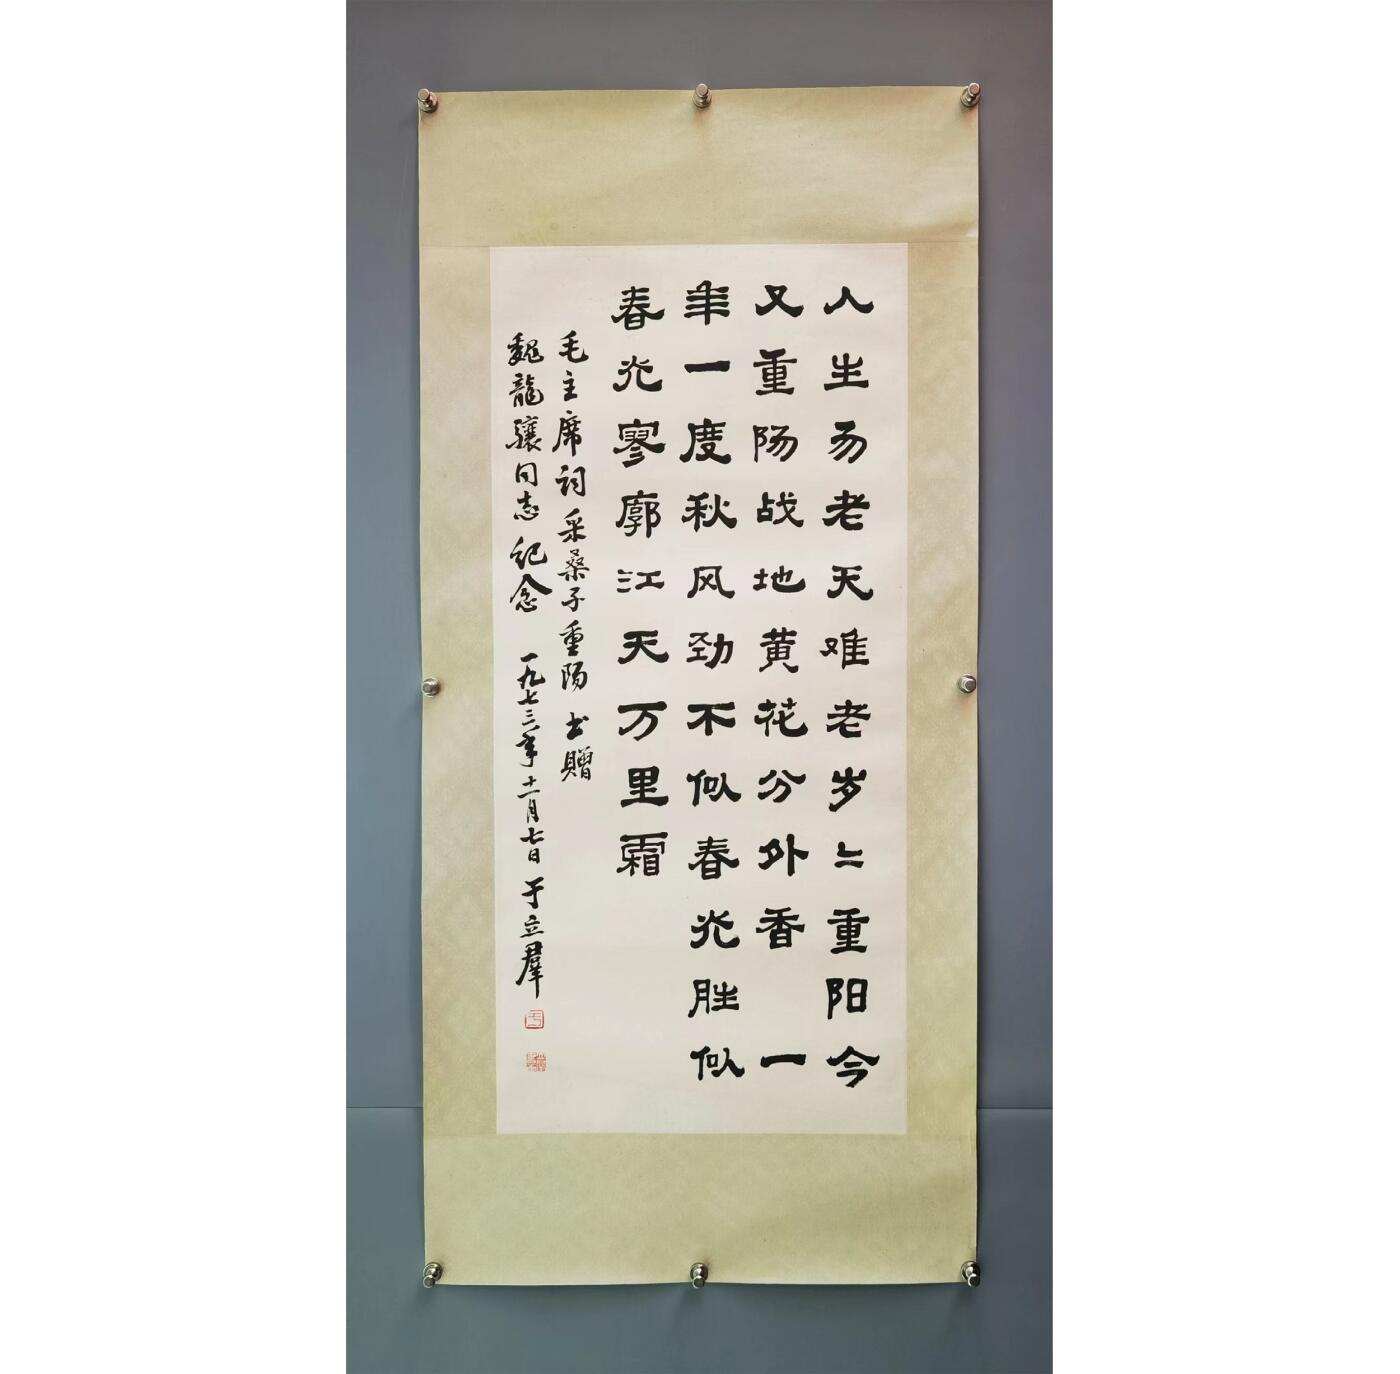 人生易老天难老岁〻重阳今
又重阳战地黄花分外香 一
年一度秋风劲不似春光胜似
春光寥廓江天万里霜
毛主席词采桑子重阳 书贈
魏龍驤同志纪念 一九七三年十一月七日 于立羣